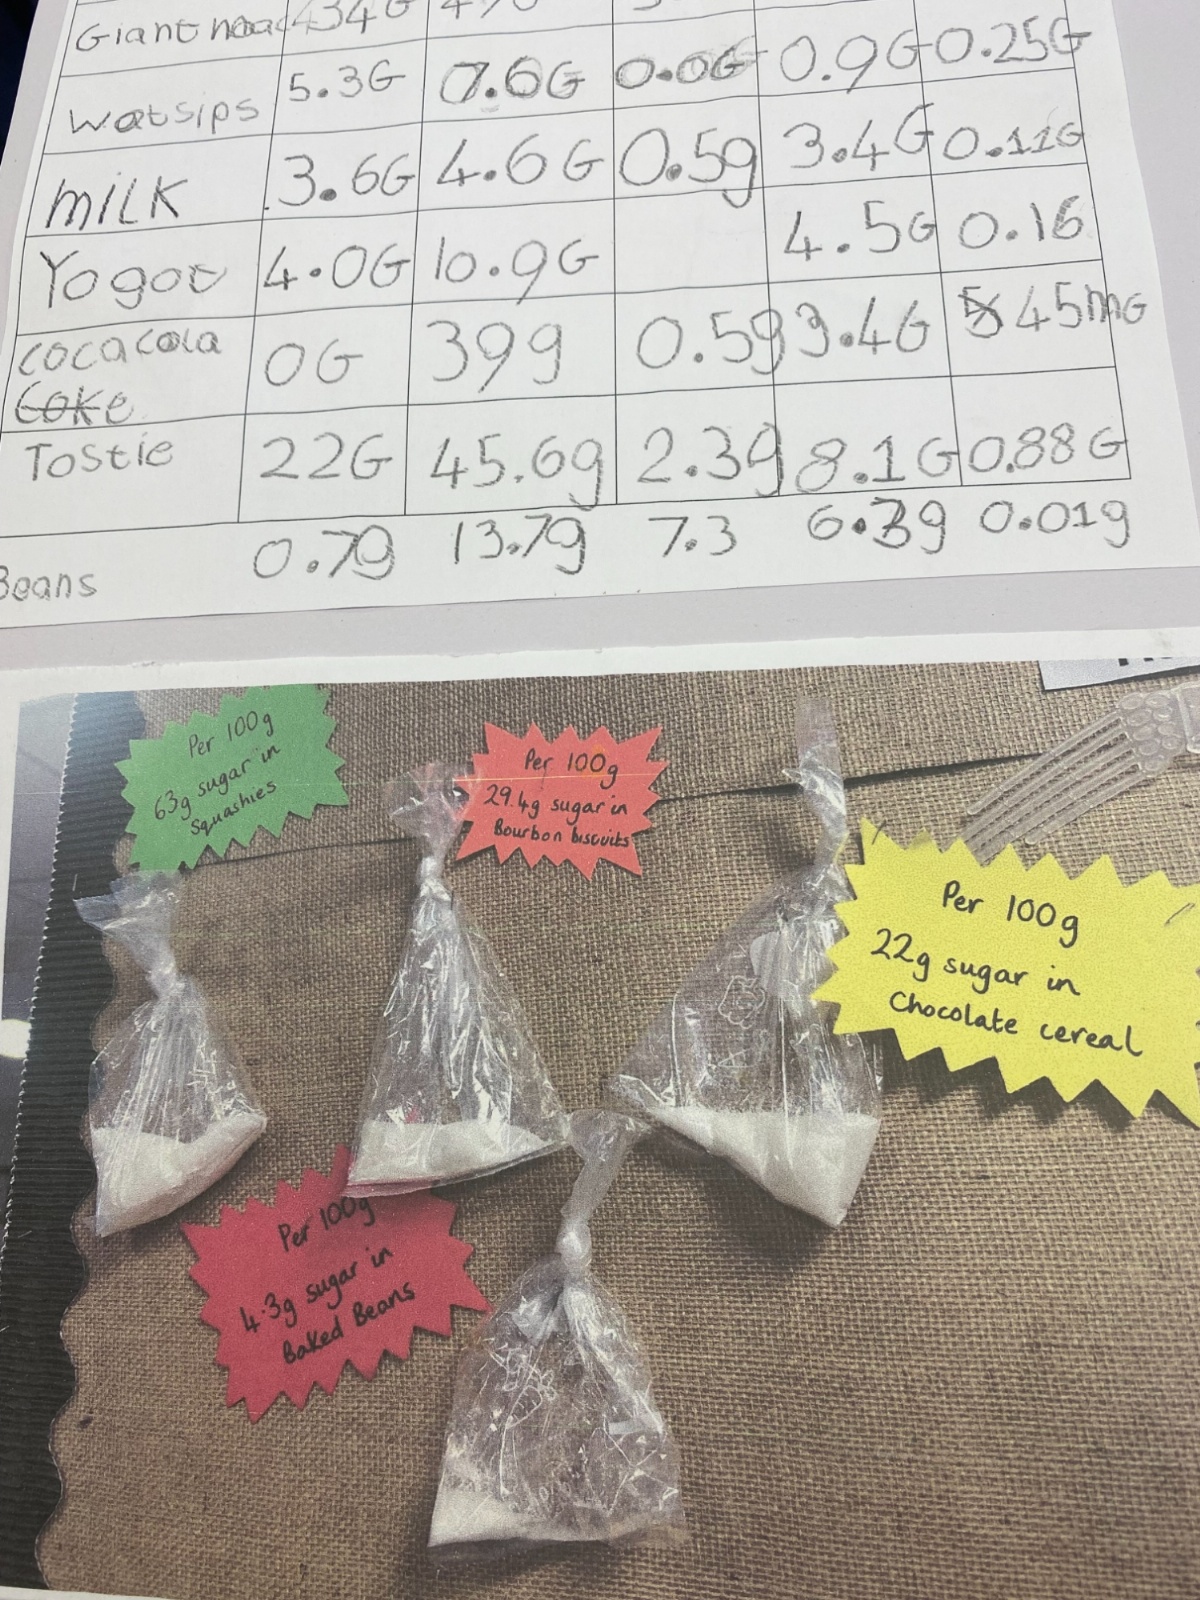 Giant
wotsips 5.3G 7.6G 0.0G 0.9G 0.25G
milk 3.6G 4.6G 0.5g 3.4G 0.11G
Yogot 4.0G 10.9G 4.5G 0.16
cocacola 0G 39g 0.5g 3.4G 45mG
Coke
Tostie 22G 45.6g 2.3g 8.1G 0.88G
Beans 0.7g 13.7g 7.3 6.3g 0.01g
Per 100g
63g sugar in
Squashies
Per 100g
29.4g sugar in
Bourbon biscuits
Per 100g
22g sugar in
Chocolate cereal
Per 100g
4.3g sugar in
Baked Beans